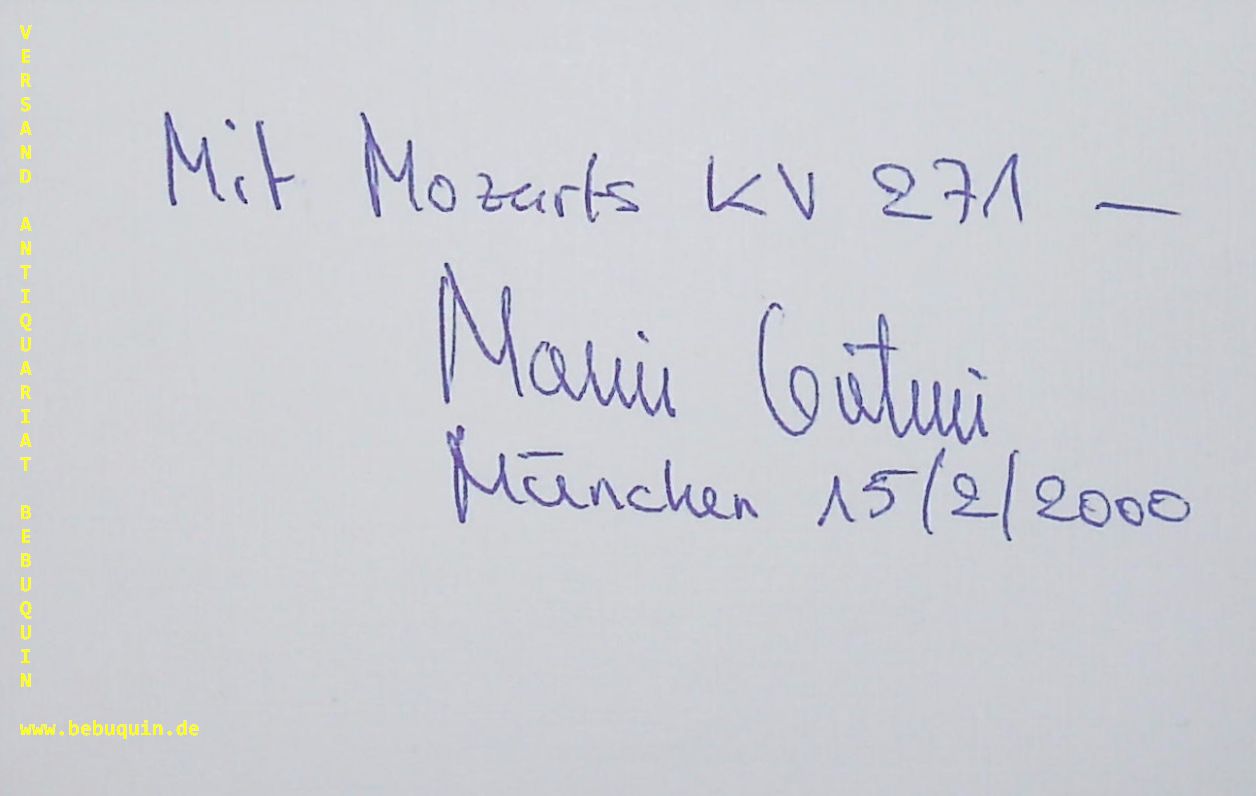 VERSAND ANTIQUARIAT BEBUQUIN
Mit Mozarts KV 271 —
München 15/2/2000
www.bebuquin.de